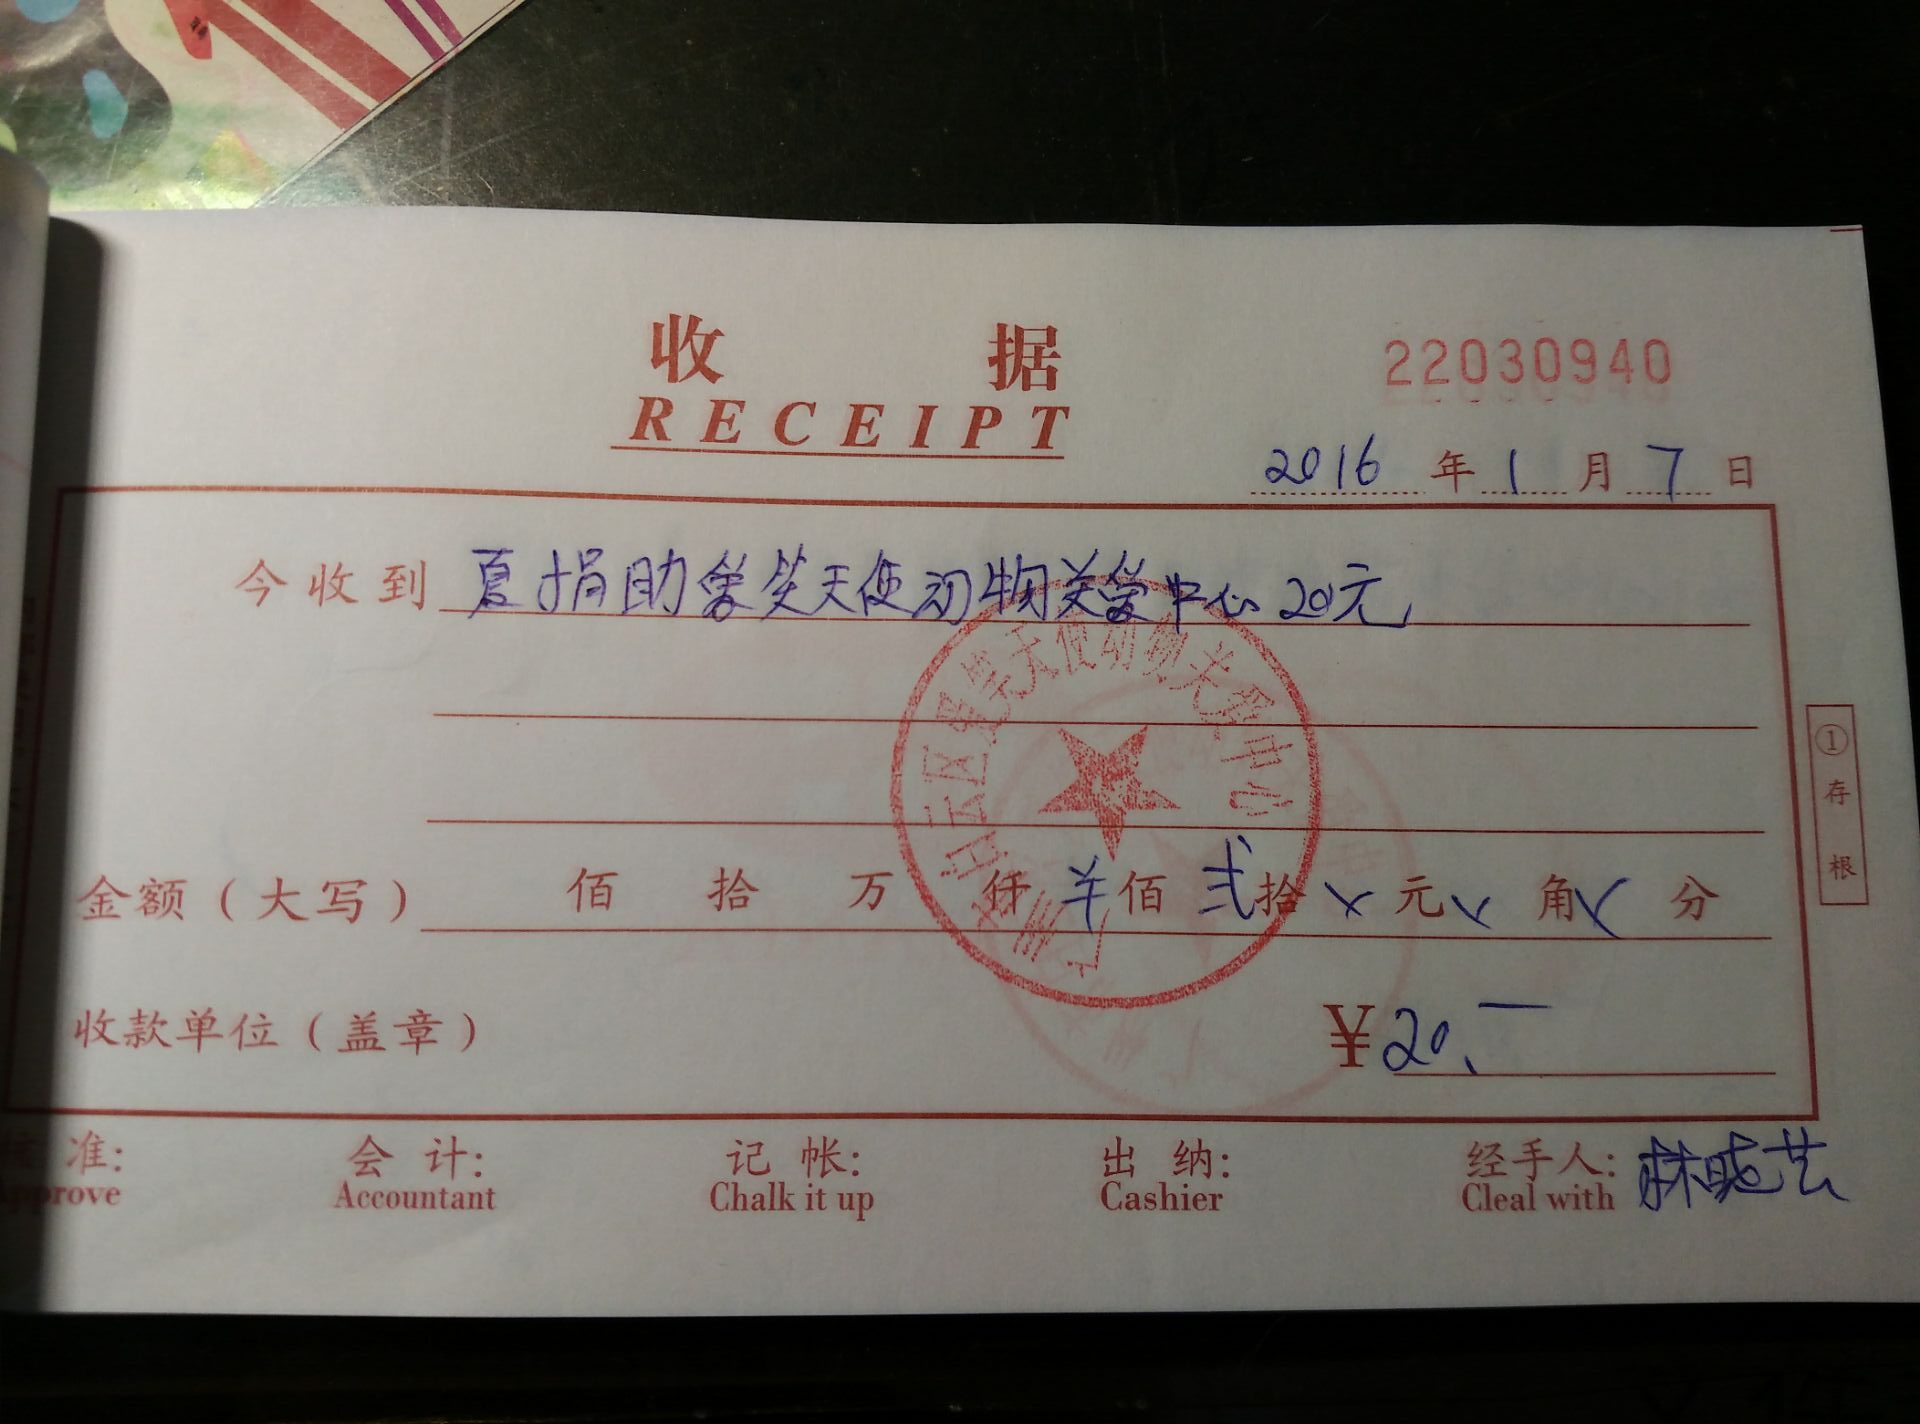 收 据
22030940
RECEIPT
2016 年 1 月 7 日
今收到 夏捐助爱笑天使动物关爱中心20元
金额（大写） 佰 拾 万 仟 ¥ 佰 弍 拾 × 元 × 角 × 分
收款单位（盖章） ¥20.—
准: 会 计: 记 帐: 出 纳: 经手人: 林晓芸
Accountant Chalk it up Cashier Cleal with
① 存根
白云区爱笑天使动物关爱中心